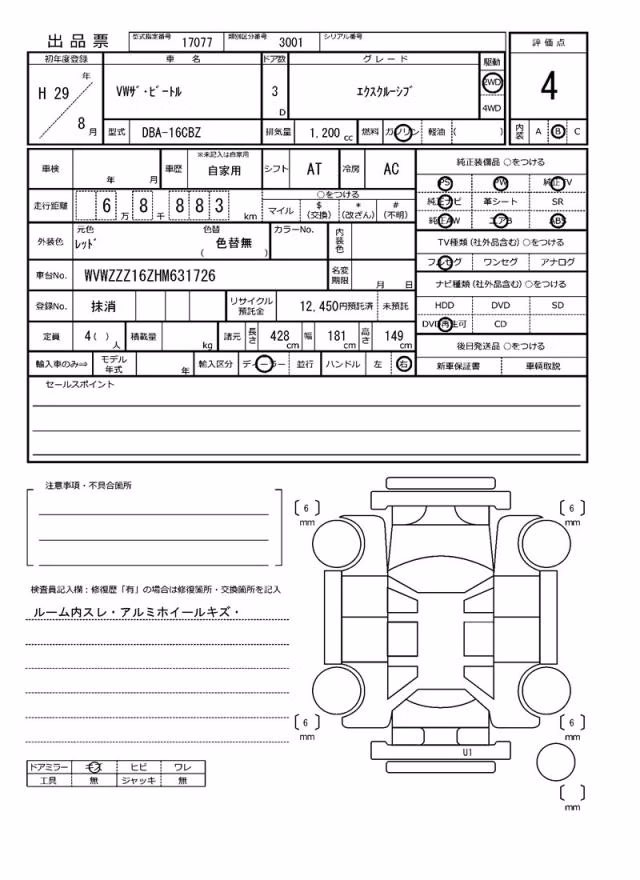 出品票 型式指定番号 17077 類別区分番号 3001 シリアル番号
評価点
初年度登録 車名 ドア数 グレード 駆動
H 29 年 8 月 VWザ・ビートル 3 D エクスクルーシブ 2WD 4WD
4
型式 DBA-16CBZ 排気量 1.200 cc 燃料 ガソリン 軽油 ( )
内装 A B C
車検 年 月 車歴 ※未記入は自家用 自家用 シフト AT 冷房 AC
走行距離 6 万 8 千 8 8 3 km
○をつける
マイル $(交換) *(改ざん) #(不明)
外装色 元色 レッド 色替 ( 色替無 ) カラーNo. 内装色
車台No. WVWZZZ16ZHM631726 名変期限 月 日
登録No. 抹消 リサイクル預託金 12.450円預託済 未預託
定員 4( ) 人 積載量 kg 諸元 長さ 428 cm 幅 181 cm 高さ 149 cm
輸入車のみ⇒ モデル年式 年 輸入区分 ディーラー 並行 ハンドル 左 右
純正装備品 ○をつける
PS PW 純正TV
純正ナビ 革シート SR
純正AW エアB ABS
TV種類(社外品含む)○をつける
フルセグ ワンセグ アナログ
ナビ種類(社外品含む)○をつける
HDD DVD SD
DVD再生可 CD
後日発送品 ○をつける
新車保証書 車輌取説
セールスポイント
注意事項・不具合箇所
検査員記入欄:修復歴「有」の場合は修復箇所・交換箇所を記入
ルーム内スレ・アルミホイールキズ・
ドアミラー キズ ヒビ ワレ
工具 無 ジャッキ 無
[ 6 ] mm
[ 6 ] mm
[ 6 ] mm
[ 6 ] mm
U1
[ ] mm